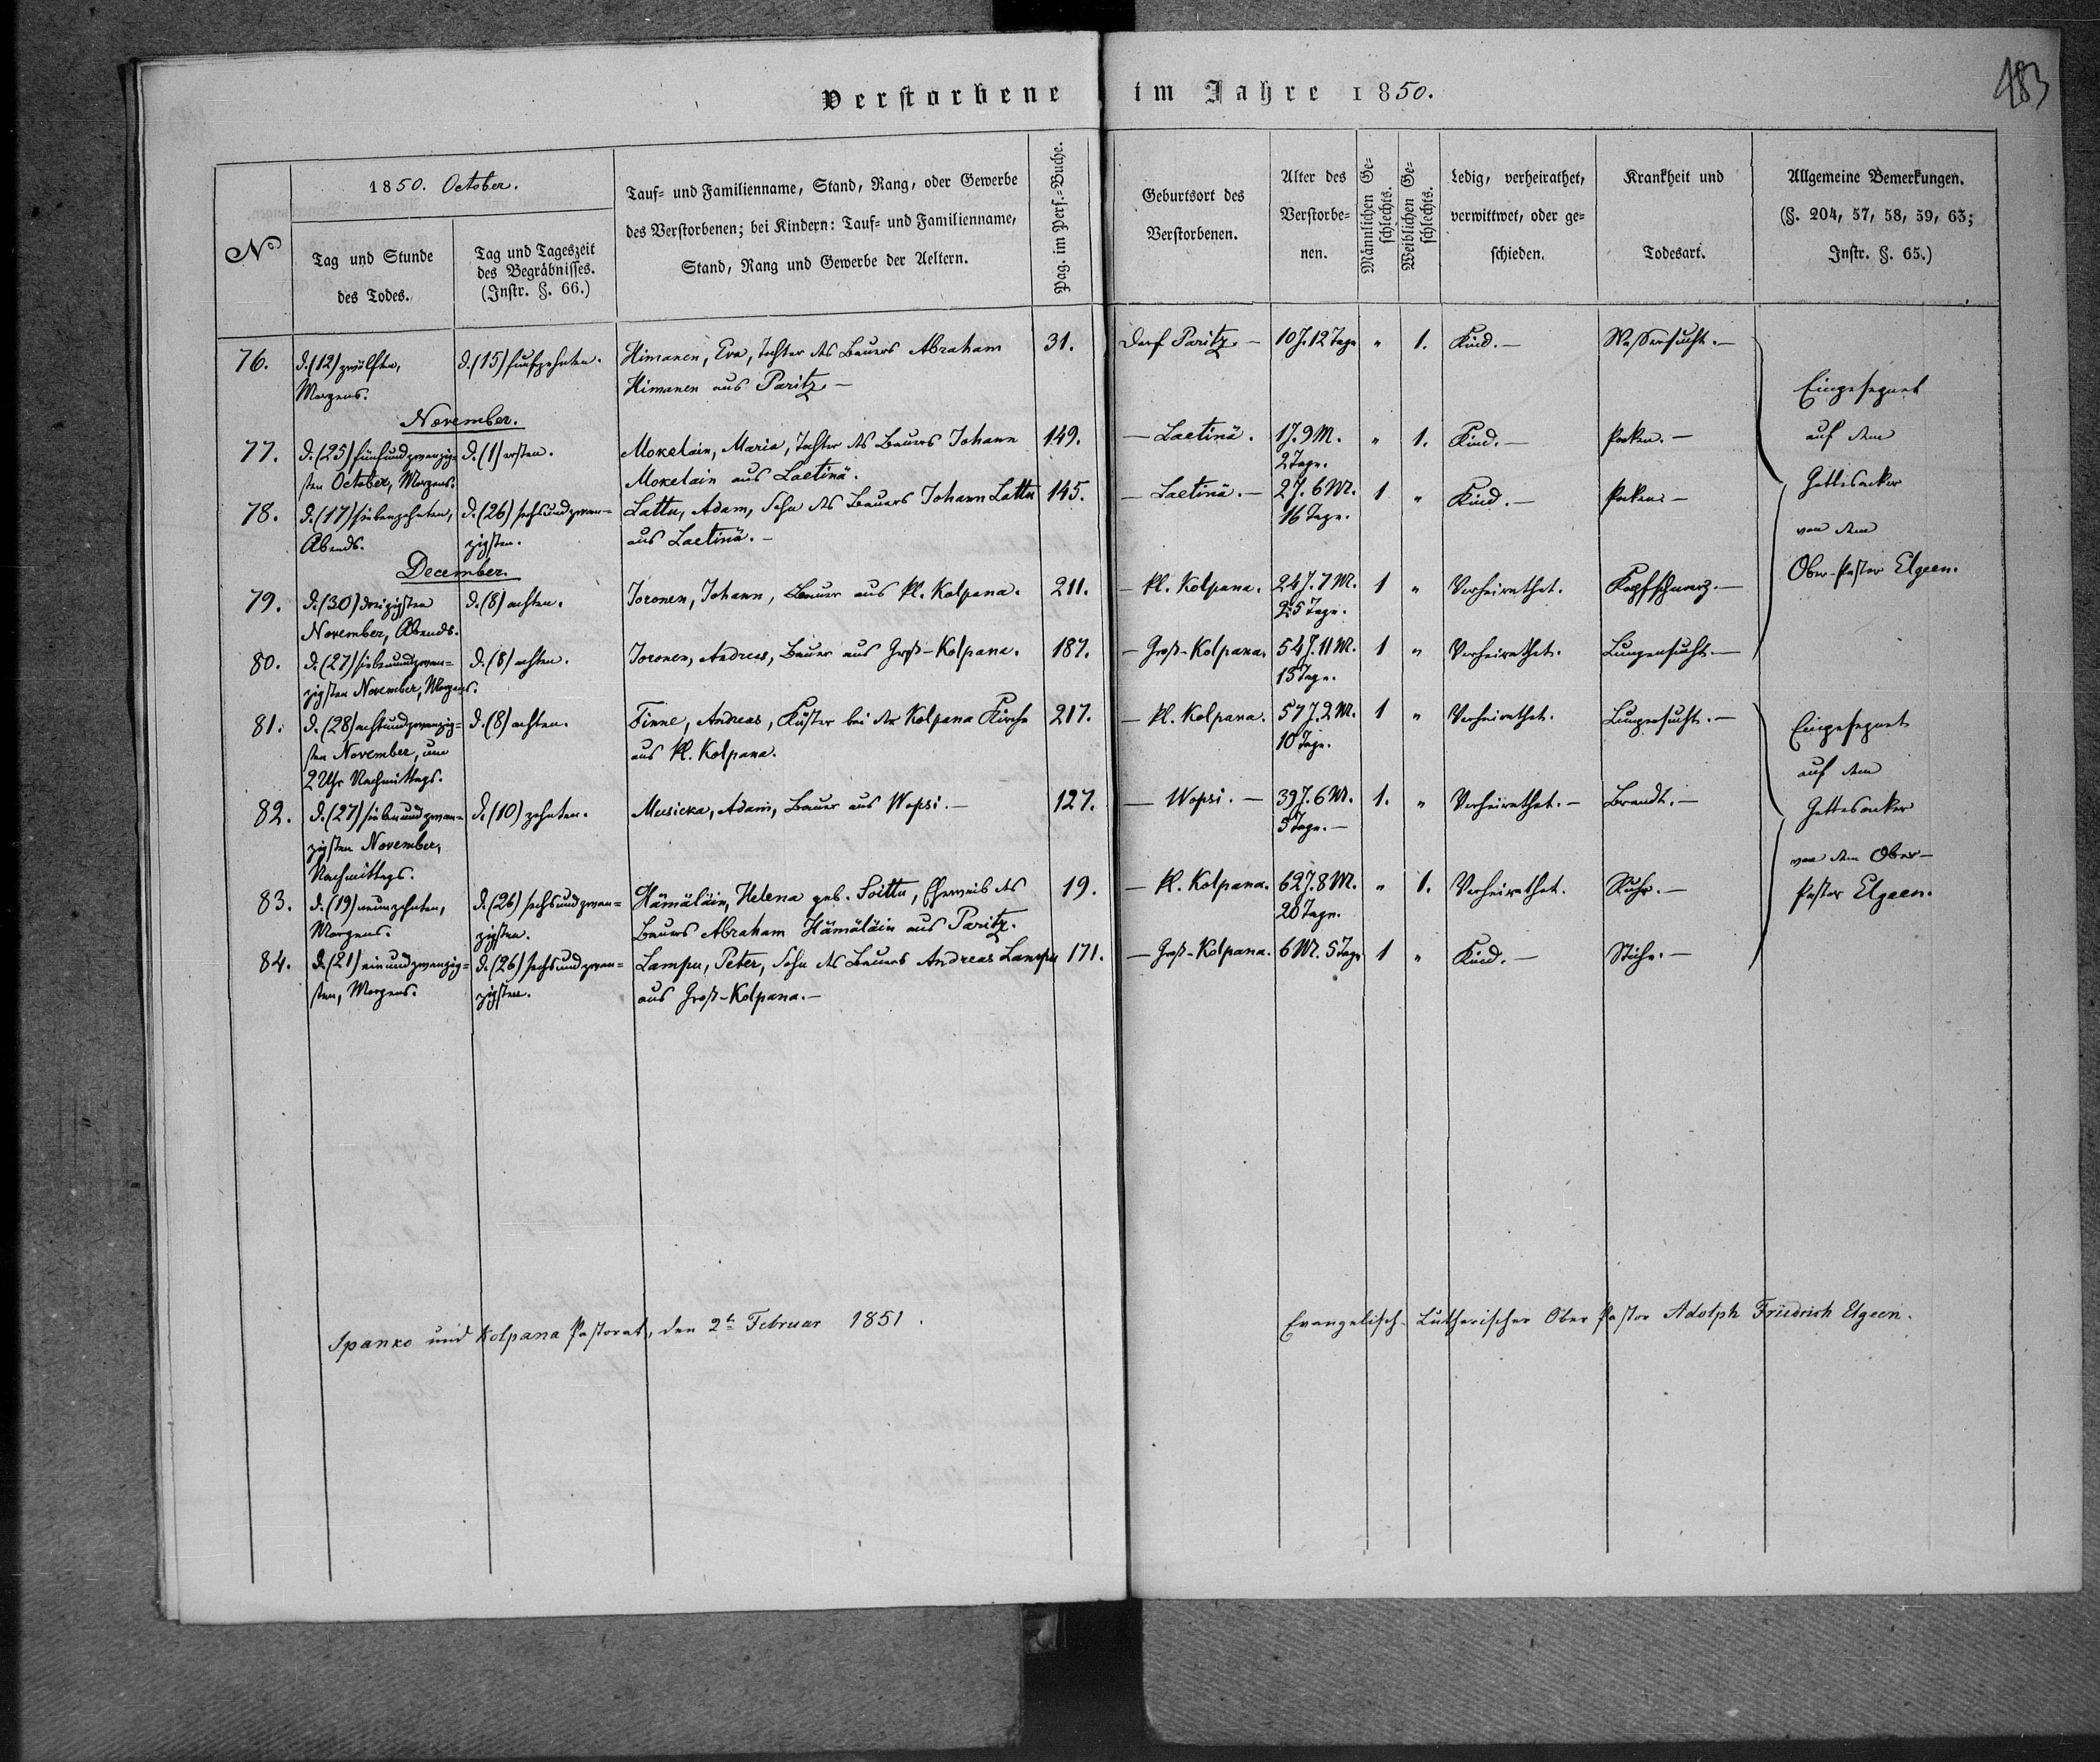 Verstorbene im Jahre 1850.
183
No
1850. October.
Tag und Stunde
des Todes.
Tag und Tageszeit
des Begräbnisses.
(Instr. §. 66.)
Tauf- und Familienname, Stand, Rang, oder Gewerbe
des Verstorbenen; bei Kindern: Tauf- und Familienname,
Stand, Rang und Gewerbe der Aeltern.
Pag. im Pers.-Buche.
Geburtsort des
Verstorbenen.
Alter des
Verstorbe-
nen.
Männlichen Ge-
schlechts.
Weiblichen Ge-
schlechts.
Ledig, verheirathet,
verwittwet, oder ge-
schieden.
Krankheit und
Todesart.
Allgemeine Bemerkungen.
(§. 204, 57, 58, 59, 63;
Instr. §. 65.)
76. d. (12) zwölften, d. (15) fünfzehnten. Himanen, Eva, Tochter des Bauers Abraham 31. Dorf Paritz. – 10 J. 12 Tage " 1. Kind. – Wassersucht. –
Morgens. Himanen aus Paritz. –
November.
77. d. (25) fünfundzwanzig- d. (1) ersten. Mokelain, Maria, Tochter des Bauers Johann 149. – Laetinä. 1 J. 9 M. " 1. Kind. – Pocken. –
sten October, Morgens. Mokelain aus Laetinä. 2 Tage.
78. d. (17) siebenzehnten, d. (26) sechsundzwan- Lattu, Adam, Sohn des Bauers Johann Lattu 145. – Laetinä. – 2 J. 6 M. 1 " Kind. – Pocken. –
Abends. zigsten. aus Laetinä. – 16 Tage.
December.
79. d. (30) dreizigsten d. (8) achten. Toronen, Johann, Bauer aus Kl. Kolpana. 211. – Kl. Kolpana. 24 J. 7 M. 1 " Verheirathet. Kopfschmerz. –
November, Abends. 25 Tage.
80. d. (27) siebenundzwan- d. (8) achten. Toronen, Andreas, Bauer aus Groß-Kolpana. 187. – Groß-Kolpana. 54 J. 11 M. 1 " Verheirathet. Lungensucht. –
zigsten November, Morgens. 13 Tage.
Eingesegnet
auf dem
Gottesacker
von dem
Ober-Pastor Elgeen.
81. d. (28) achtundzwanzig- d. (8) achten. Finne, Andreas, Küster bei der Kolpana Kirche 217. – Kl. Kolpana. 57 J. 2 M. 1 " Verheirathet. Lungensucht. –
sten November, um aus Kl. Kolpana. 10 Tage.
2 Uhr Nachmittags.
82. d. (27) siebenundzwan- d. (10) zehnten. Meesicka, Adam, Bauer aus Wopsi. – 127. – Wopsi. – 39 J. 6 M. 1. " Verheirathet. – Brandt. –
zigsten November, 5 Tage. –
Nachmittags.
83. d. (19) neunzehnten, d. (26) sechsundzwan- Hämäläin, Helena geb. Soittu, Eheweib des 19. – Kl. Kolpana. 62 J. 8 M. " 1. Verheirathet. Ruhr. –
Morgens. zigsten. Bauers Abraham Hämäläin aus Paritz. 20 Tage.
84. d. (21) einundzwanzig- d. (26) sechsundzwan- Lampu, Peter, Sohn des Bauers Andreas Lampu 171. – Groß-Kolpana. 6 M. 5 Tage 1 " Kind. –
sten, Morgens. zigsten. aus Groß-Kolpana. –
Eingesegnet
auf dem
Gottesacker
von dem Ober-
Pastor Elgeen.
Spanko und Kolpana Pastorat, den 2t Februar 1851. Evangelisch-Lutherischer Ober Pastor Adolph Friedrich Elgeen.